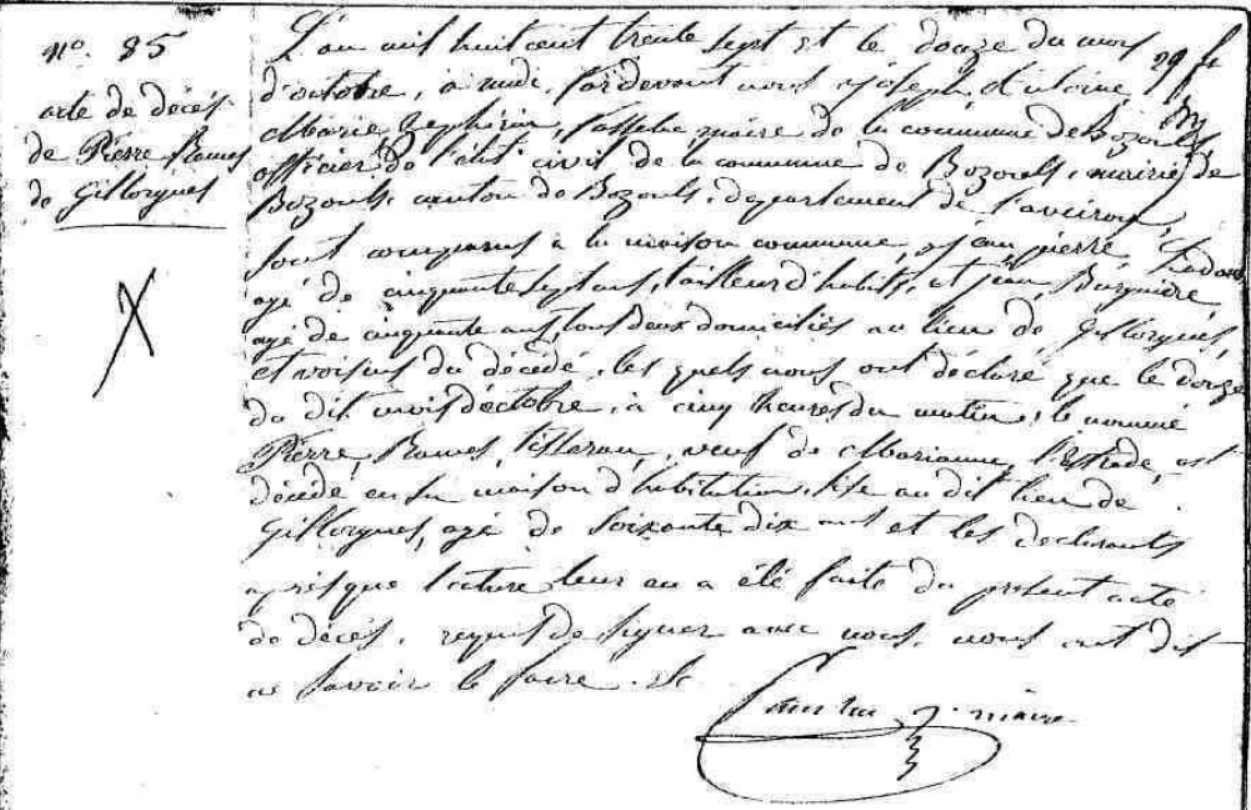 N°. 85
acte de décès
de Pierre Rames
de Gillorgues
L'an mil huit cent trente sept et le douze du mois
d'octobre, à midi, pardevant nous Joseph, Antoine
Marie, Zephirin, maire de la commune de Bozouls,
officier de l'état civil de la commune de Bozouls, mairie de
Bozouls, canton de Bozouls, département de l'aveiron,
sont comparus à la maison commune, jean, pierre
agé de cinquante sept ans, tailleur d'habits, et jean,
agé de cinquante ans, tous deux domiciliés au lieu de Gillorgues,
et voisins du décédé, les quels nous ont déclaré que le douze
du dit mois d'octobre, à cinq heures du matin, le nommé
Pierre, Rames, tisseran, veuf de Marianne, l'Estrade, est
décédé en sa maison d'habitation, sise au dit lieu de
Gillorgues, agé de soixante dix ans et les declarants
après que lecture leur en a été faite du present acte
de décès, requis de signer avec nous, nous ont dit
ne savoir le faire.
maire